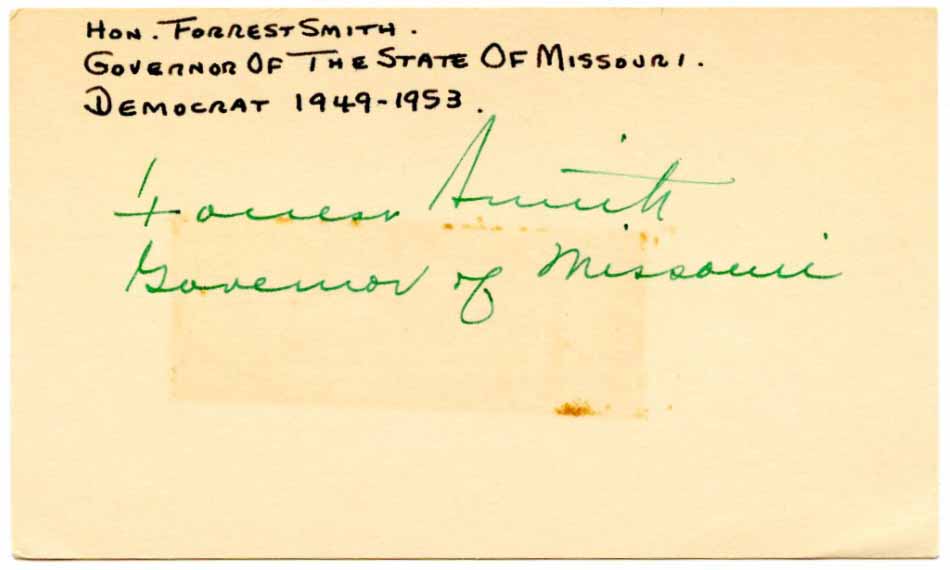 HON. FORREST SMITH.
GOVERNOR OF THE STATE OF MISSOURI.
DEMOCRAT 1949-1953.
Forrest Smith
Governor of Missouri